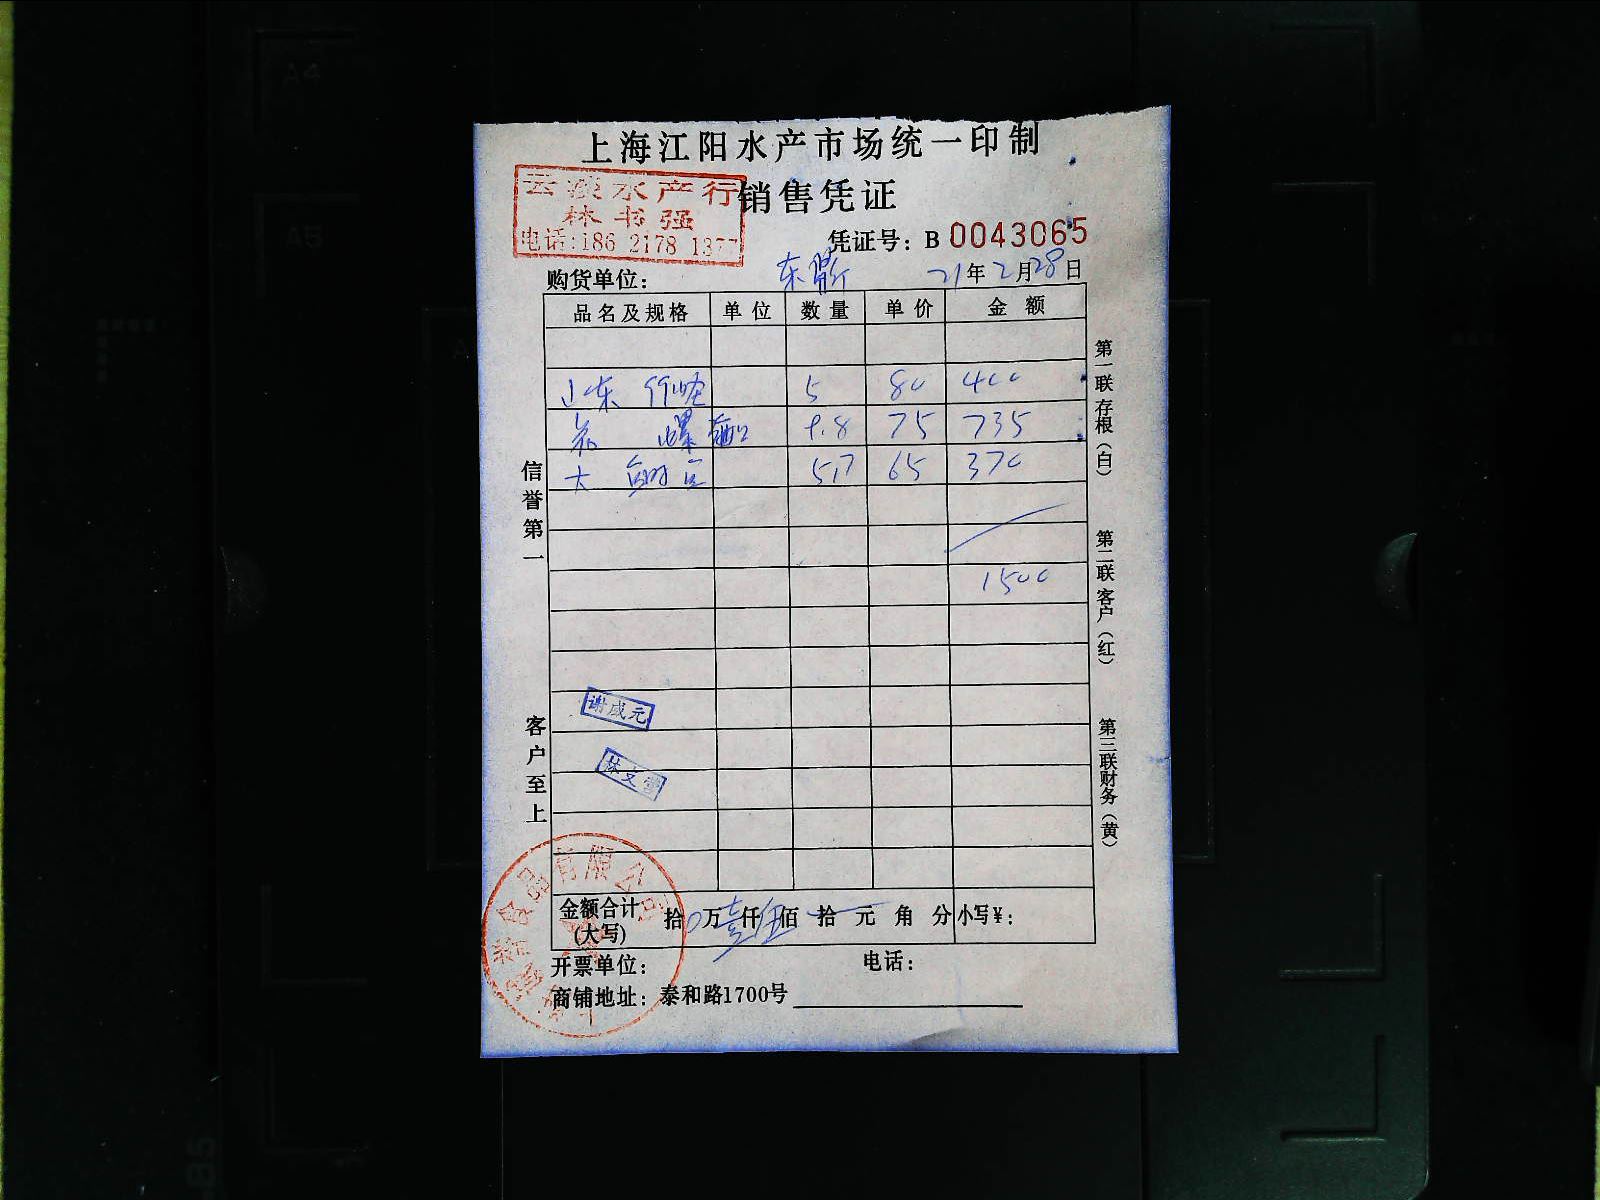 上海江阳水产市场统一印制
销售凭证
水产行
林书强
电话:186 2178 1377
凭证号: B 0043065
购货单位: 东
21年2月28日
品名及规格 单位 数量 单价 金额
山东 5 80 400
螺 9.8 75 735
大 5.7 65 370
1500
信誉第一
客户至上
第一联存根(白)
第二联客户(红)
第三联财务(黄)
谢成元
林文
食品有限公司
金额合计(大写) 拾0万壹仟伍佰拾元角分 小写¥:
开票单位: 电话:
商铺地址: 泰和路1700号